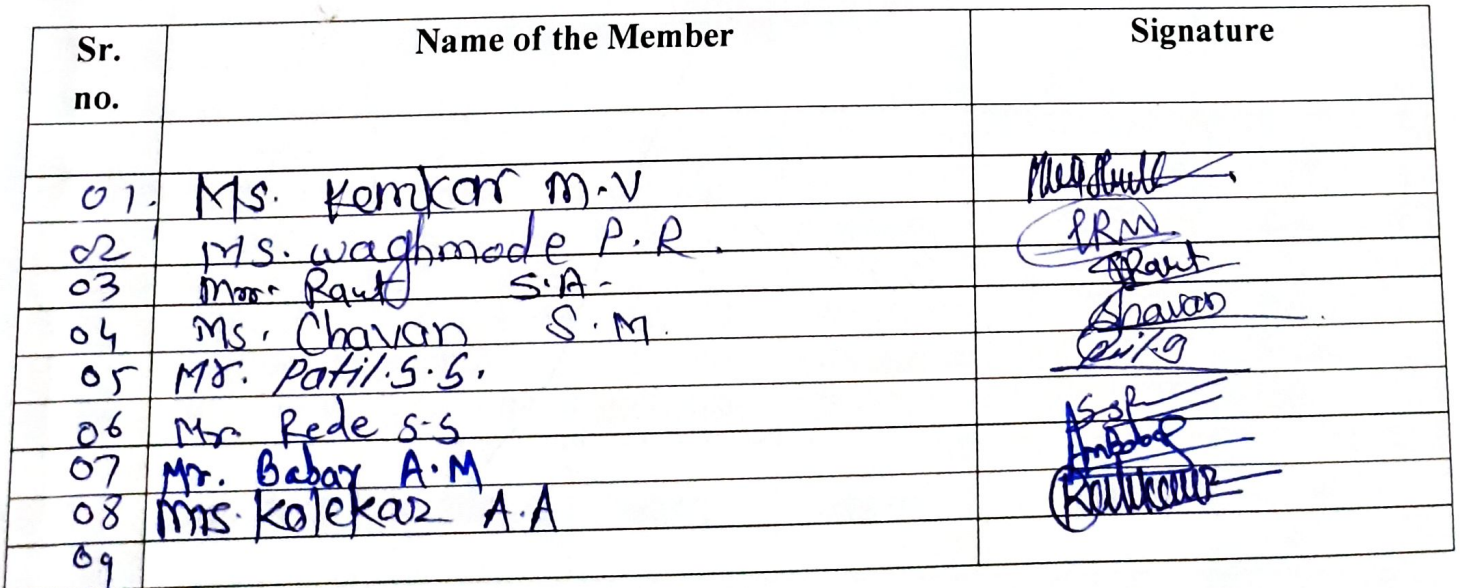 Sr. no. Name of the Member Signature
01. Ms. Kemkar M.V
02 Ms. Waghmode P.R. PRW.
03 Raut S.A. Raut
04 Ms. Chavan S.M. Chavan
05 Mr. Patil.S.S.
06 Mr. Rede S-S SSR
07 Mr. Babar A.M AmBabar
08 Mrs. Kolekar A.A
09